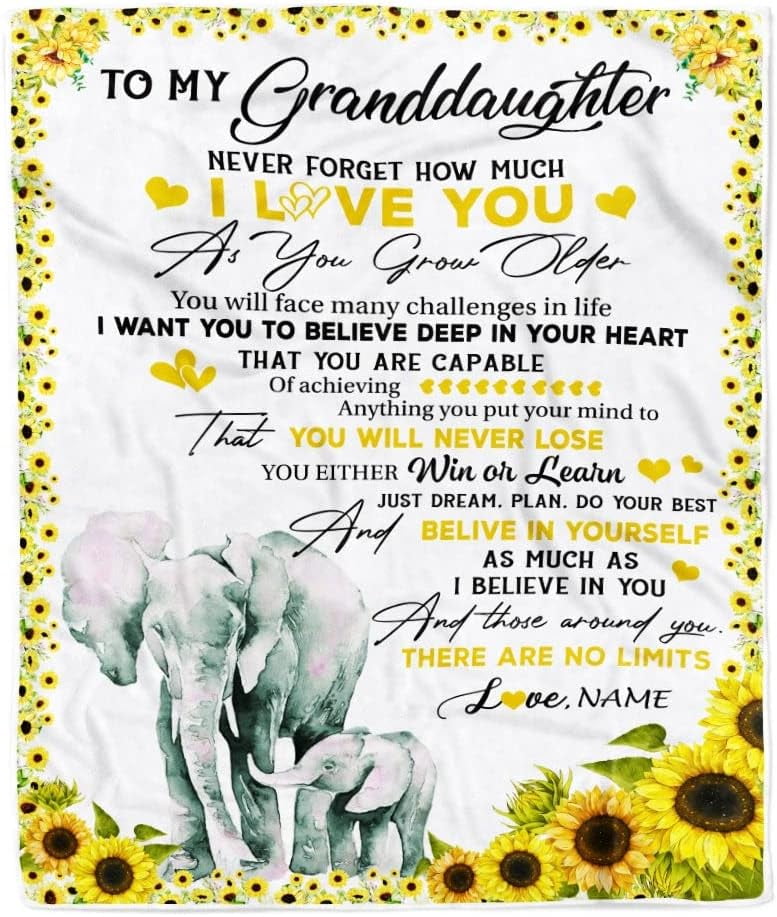 TO MY Granddaughter
NEVER FORGET HOW MUCH
I LOVE YOU
As You Grow Older
You will face many challenges in life
I WANT YOU TO BELIEVE DEEP IN YOUR HEART
THAT YOU ARE CAPABLE
Of achieving
Anything you put your mind to
That YOU WILL NEVER LOSE
YOU EITHER Win or Learn
JUST DREAM. PLAN. DO YOUR BEST
And BELIVE IN YOURSELF
AS MUCH AS
I BELIEVE IN YOU
And those around you.
THERE ARE NO LIMITS
Love, NAME